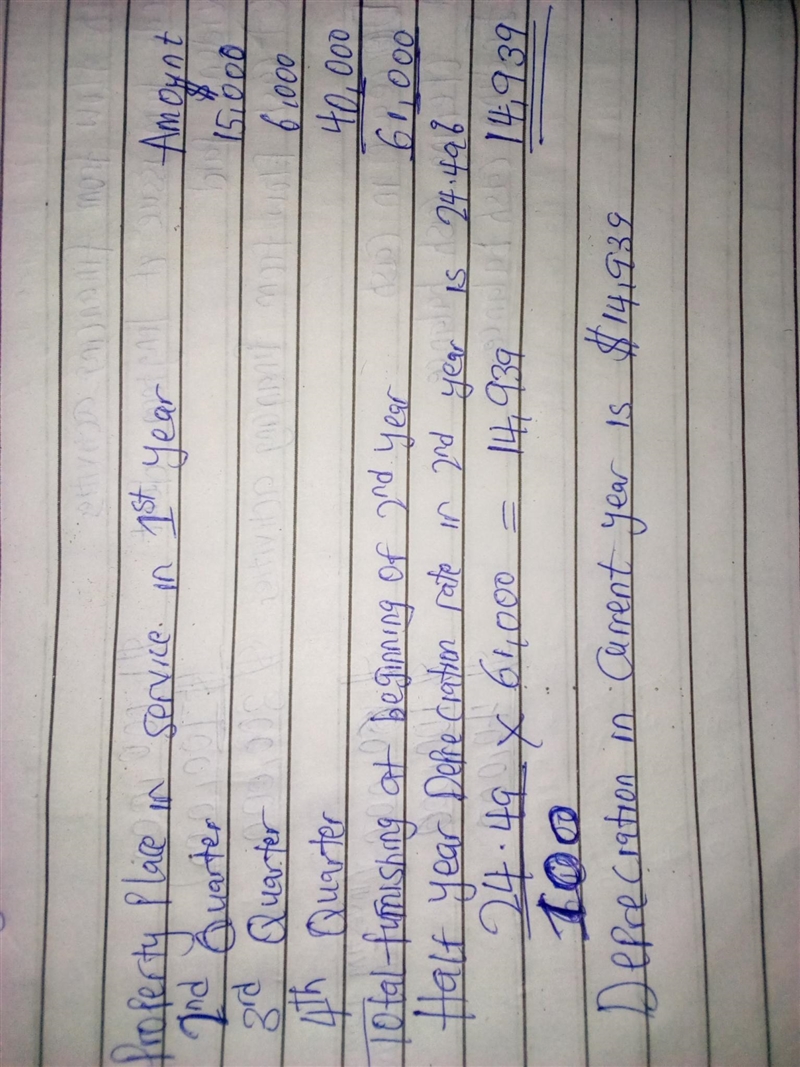 Property Place in service in 1st year Amount
$
2nd Quarter 15,000
3rd Quarter 6,000
4th Quarter 40,000
Total furnishing at beginning of 2nd year 61,000
Half year Depreciation rate in 2nd year is 24.49%
24.49 × 61,000 = 14,939 14,939
100
Depreciation in Current year is $14,939